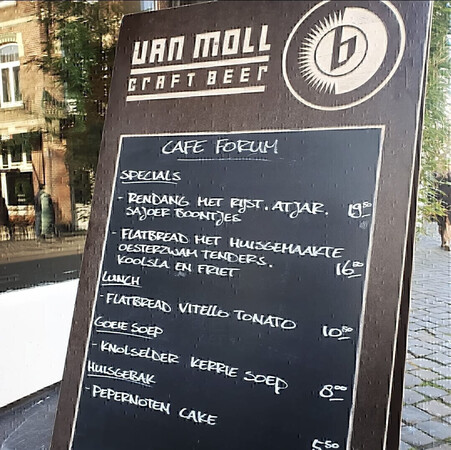 VAN MOLL
CRAFT BEER
b
CAFE FORUM
SPECIALS
- RENDANG MET RIJST. ATJAR.
SAJOER BOONTJES 19,50
- FLATBREAD MET HUISGEMAAKTE
OESTERZWAM TENDERS.
KOOLSLA EN FRIET 16,00
LUNCH
- FLATBREAD VITELLO TONATO 10,50
GOEIE SOEP
- KNOLSELDER KERRIE SOEP 8,00
HUISGEBAK
- PEPERNOTEN CAKE 5,50